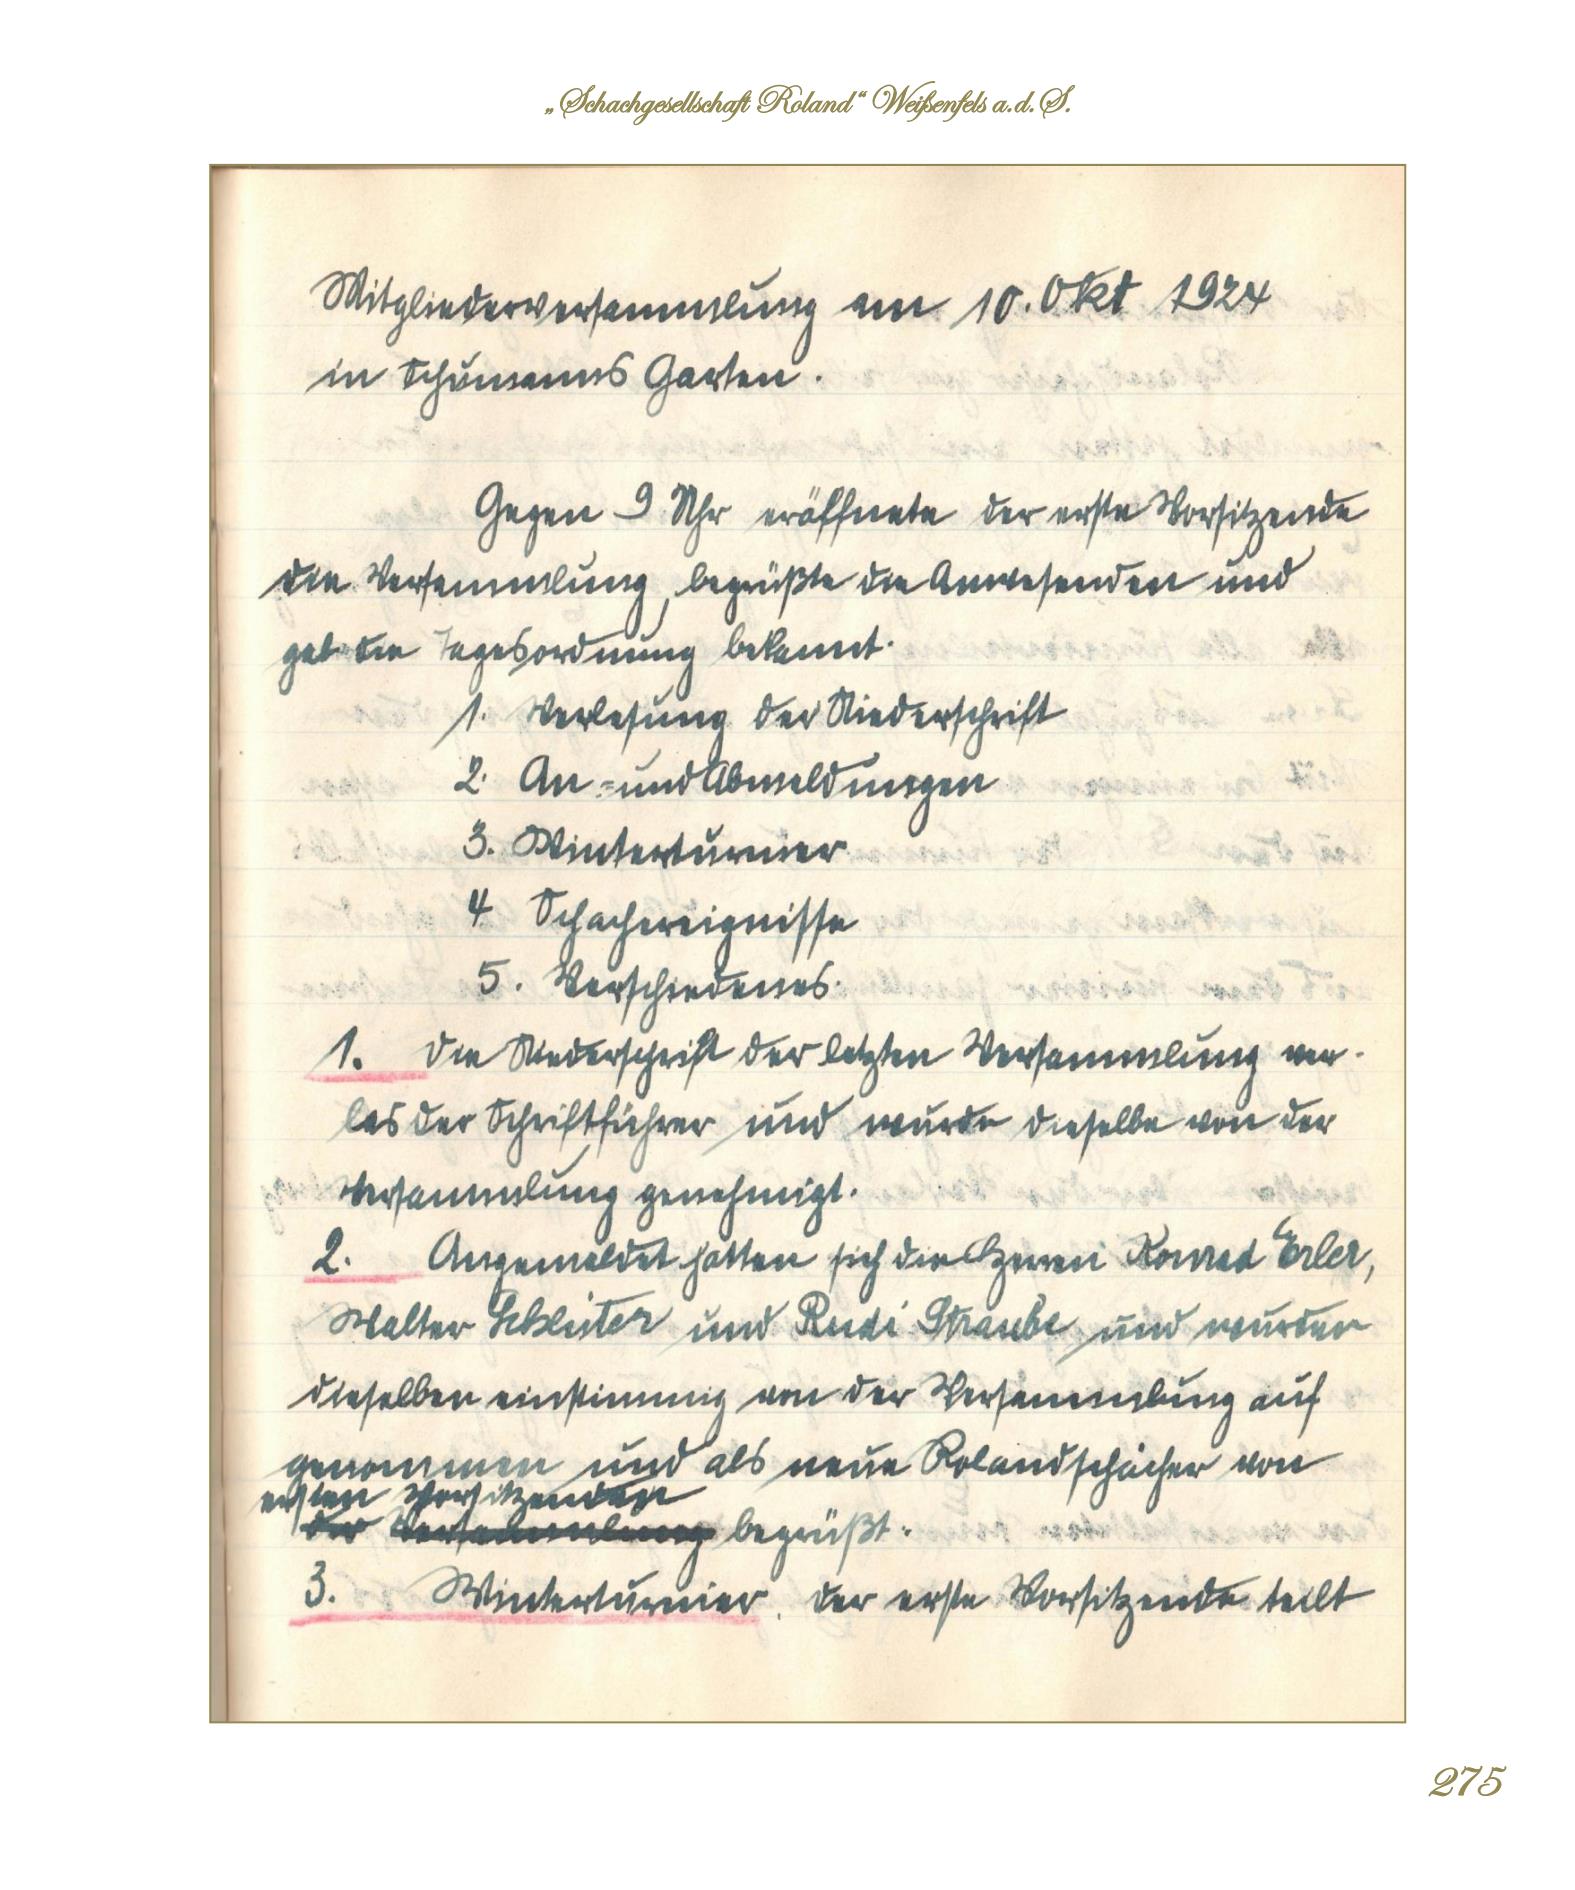 „Schachgesellschaft Roland“ Weißenfels a.d.S.
Mitgliederversammlung am 10. Okt 1924
in Schumanns Garten.
Gegen 9 Uhr eröffnete der erste Vorsitzende
die Versammlung, begrüßte die Anwesenden und
gab die Tagesordnung bekannt.
1. Verlesung der Niederschrift
2. An- und Abmeldungen
3. Winterturnier
4 Schachereignisse
5. Verschiedenes.
1. Die Niederschrift der letzten Versammlung ver-
las der Schriftführer und wurde dieselbe von der
Versammlung genehmigt.
2. Angemeldet hatten sich die Herren Konrad Erler,
Walter Schleiter und Rudi Straube und wurden
dieselben einstimmig von der Versammlung auf
genommen und als neue Rolandschächer von
ersten Vorsitzenden
der Versammlung begrüßt.
3. Winterturnier. Der erste Vorsitzende teilt
275